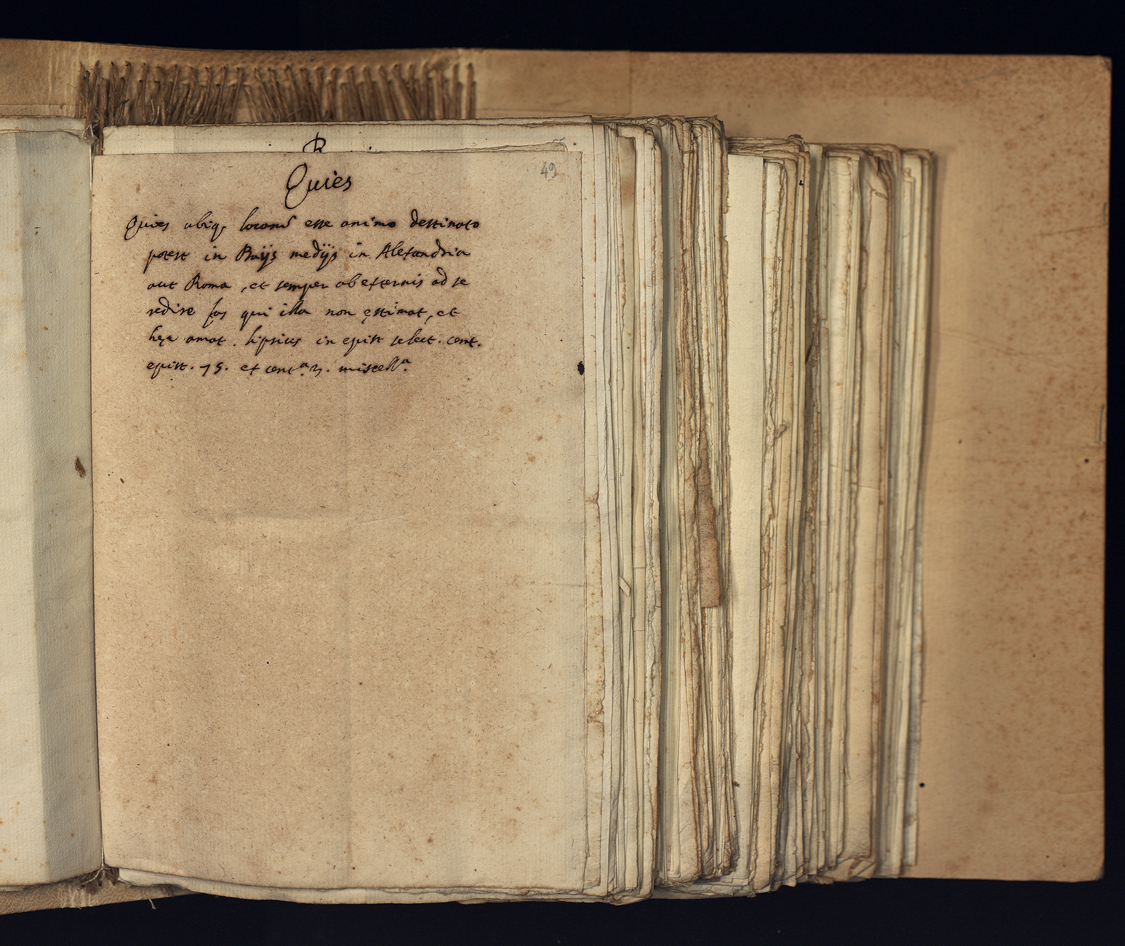 R
49
Quies
Quies ubiq, locorũ esse animo destinato
potest in Baijs medijs in Alexandria
aut Roma, et semper ab externis ad se
redire fas qui illa non ęstimat, et
hęc amat. Lipsius in epist select. cent.
epist. 75. et centᵃ 3. miscellᵃ.